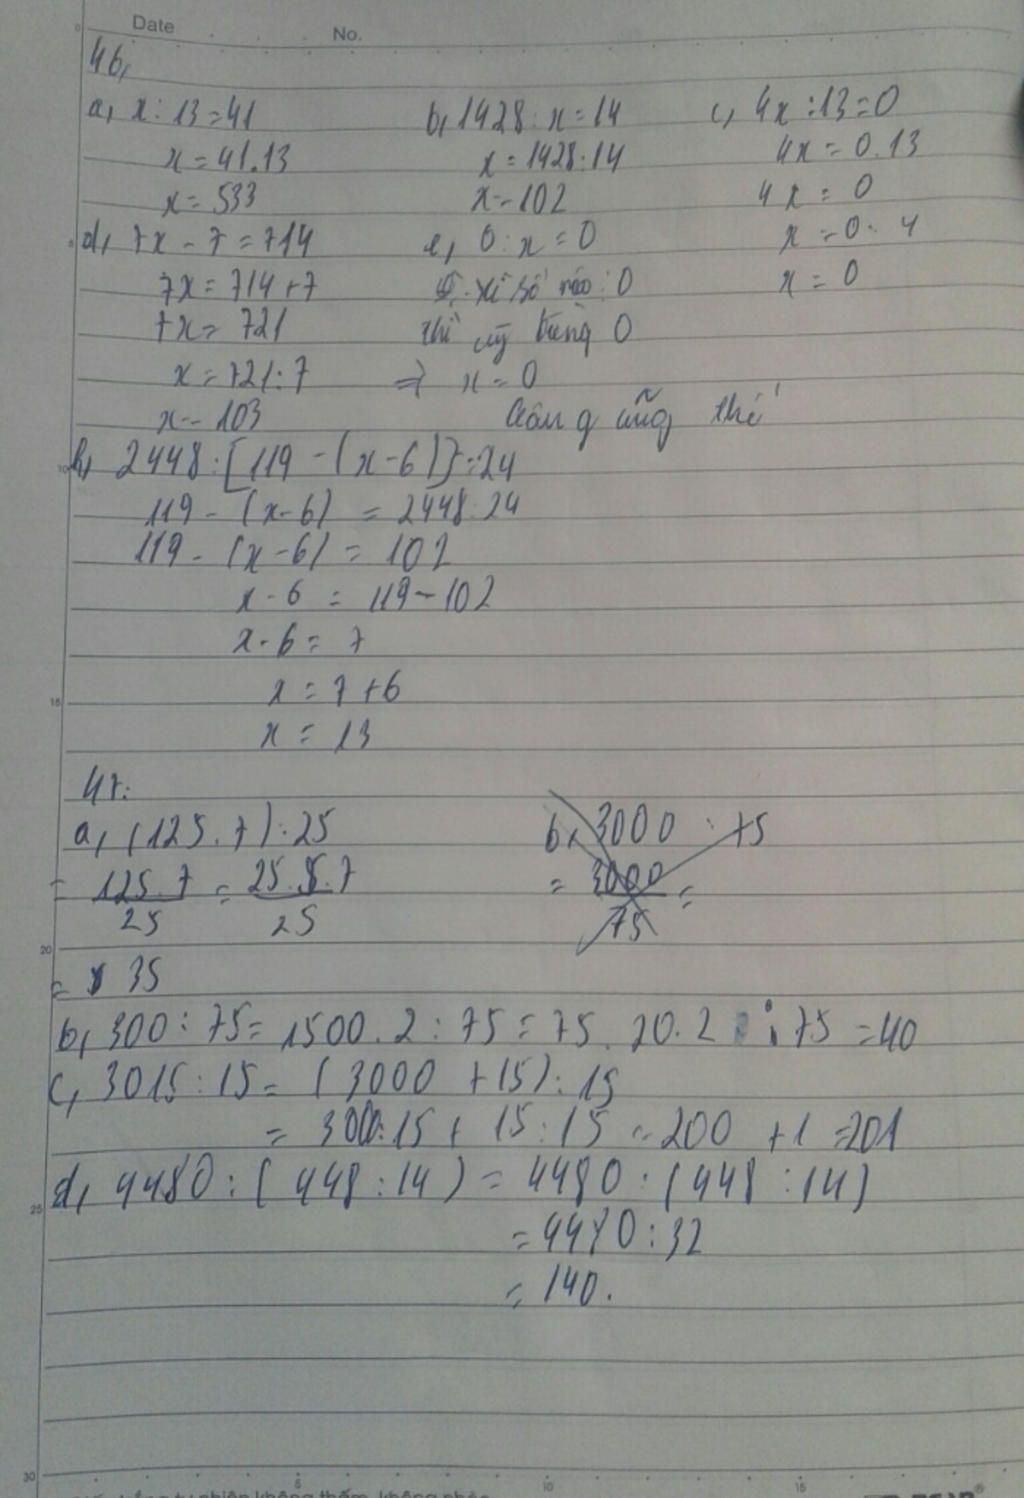 Date No.
46,
a, x : 13 = 41 b, 1428 : x = 14 c, 4x : 13 = 0
x = 41.13 x = 1428 : 14 4x = 0.13
x = 533 x = 102 4x = 0
d, 7x - 7 = 714 e, 0 : x = 0 x = 0 : 4
7x = 714 + 7 số nào : 0 x = 0
7x = 721 thì cũg bằng 0
x = 721 : 7 => x = 0
x = 103 Câu g cũng thế
h, 2448 : [119 - (x - 6)] = 24
119 - (x - 6) = 2448 : 24
119 - (x - 6) = 102
x - 6 = 119 - 102
x - 6 = 7
x = 7 + 6
x = 13
47.
a, (125 . 7) : 25 b, 3000 : 75
= 125 . 7 / 25 = 25 . 5 . 7 / 25 = 3000 / 75 =
= 35
b, 300 : 75 = 1500 . 2 : 75 = 75 . 20 . 2 : 75 = 40
c, 3015 : 15 = (3000 + 15) : 15
= 3000 : 15 + 15 : 15 = 200 + 1 = 201
d, 4480 : (448 : 14) = 4480 : (448 : 14)
= 4480 : 32
= 140.